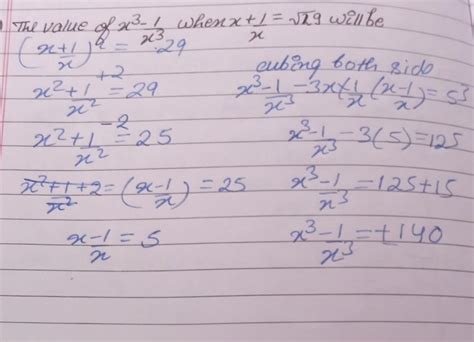 The value of x³-1/x³ when x+1/x = √29 will be
(x+1/x)² = 29
x²+1/x²+2 = 29
x²+1/x²-2 = 25
x²+1/x²+2 = (x-1/x) = 25
x-1/x = 5
cubing both side
x³-1/x³-3x×1/x(x-1/x) = 5³
x³-1/x³-3(5) = 125
x³-1/x³ = 125+15
x³-1/x³ = +140